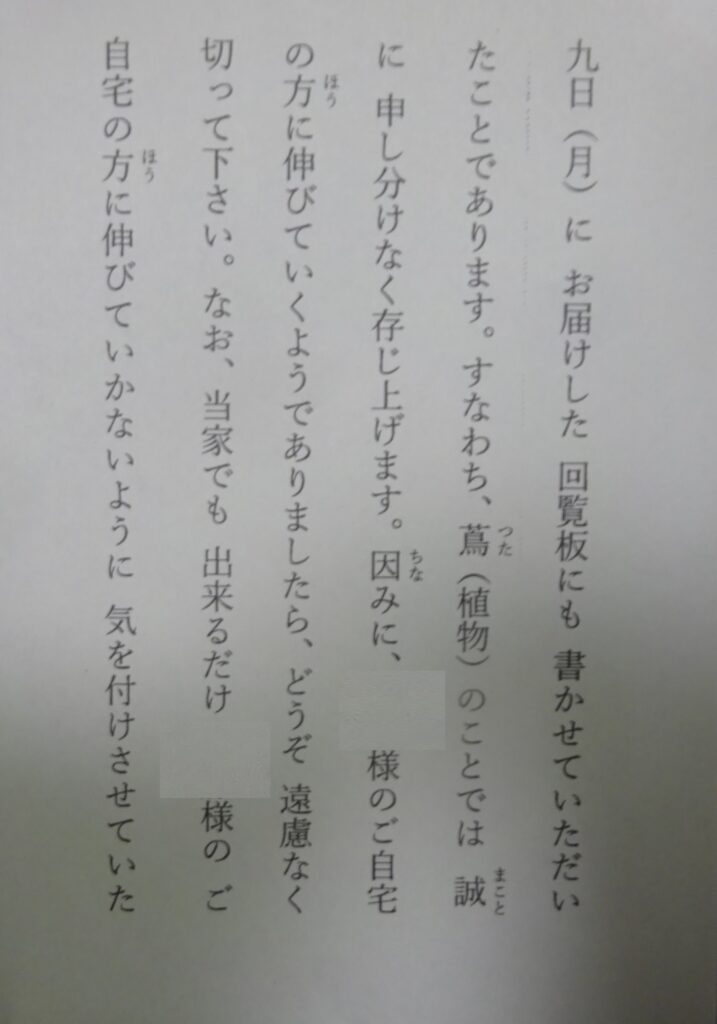 九日（月）に お届けした 回覧板にも 書かせていただい
たことであります。すなわち、蔦（植物）のことでは 誠
に 申し分けなく存じ上げます。因みに、 様のご自宅
の方に伸びていくようでありましたら、どうぞ 遠慮なく
切って下さい。なお、当家でも 出来るだけ 様の ご
自宅の方に伸びていかないように 気を付けさせていた